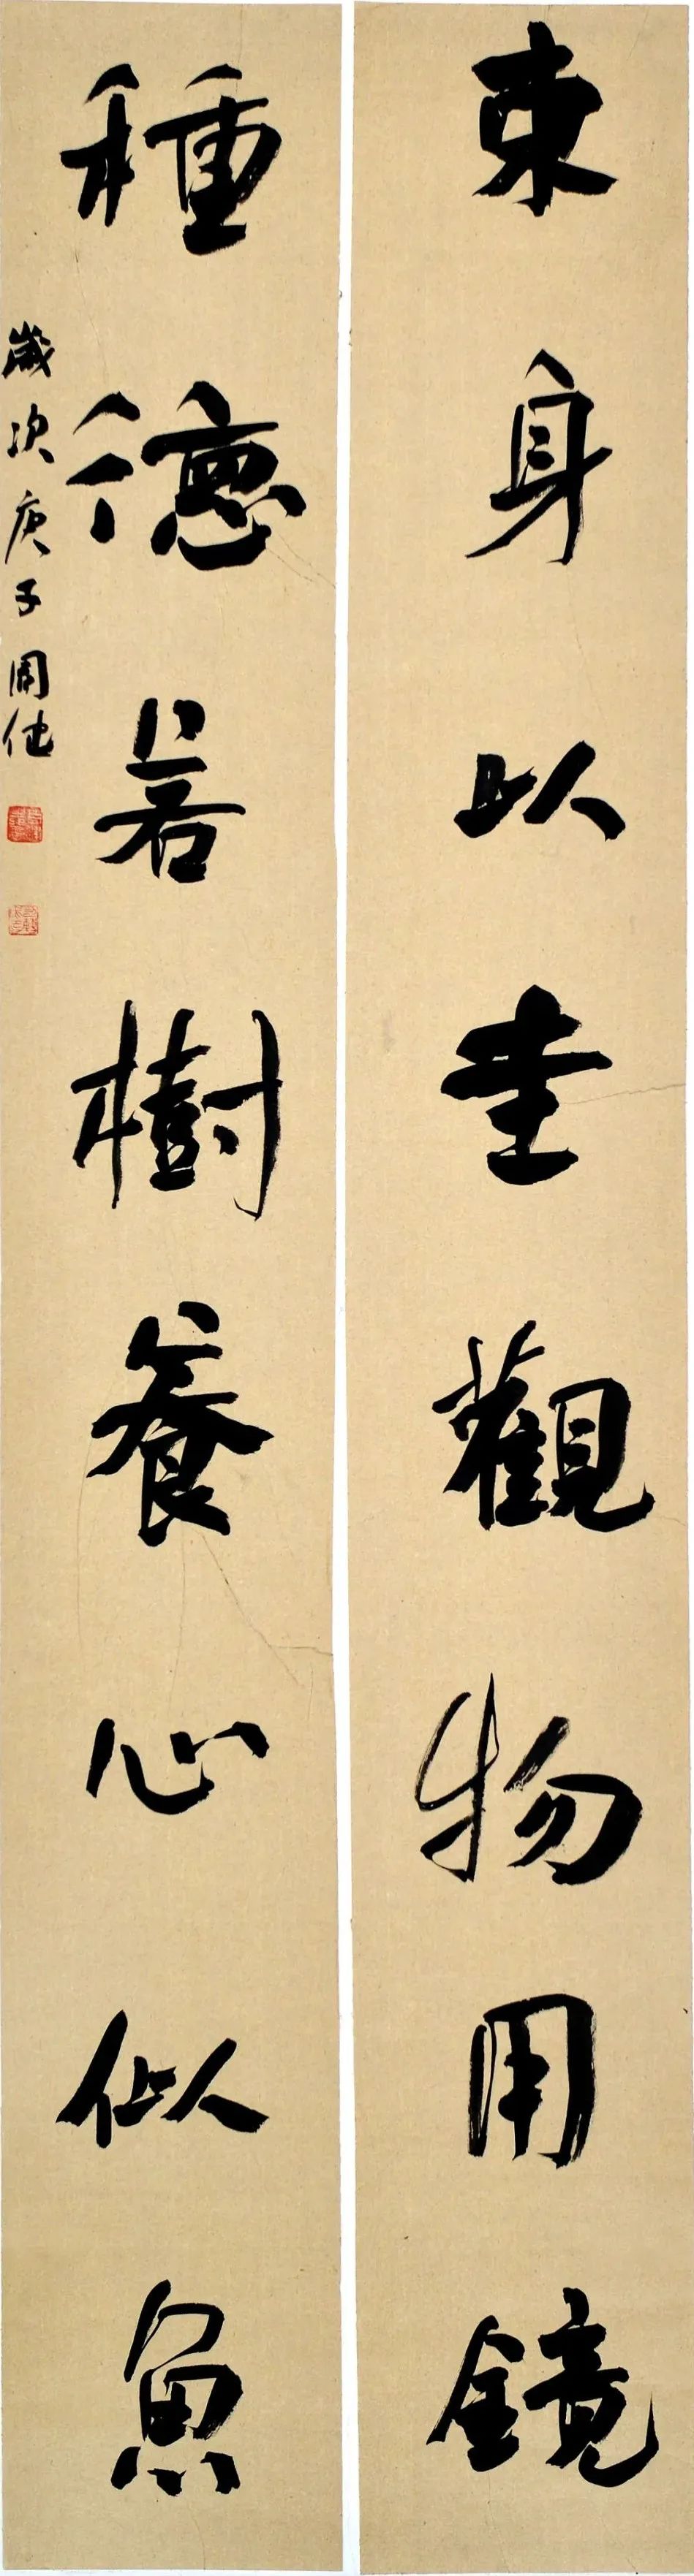 束身以圭觀物用鏡
種德若樹養心似魚
歲次庚子周仕